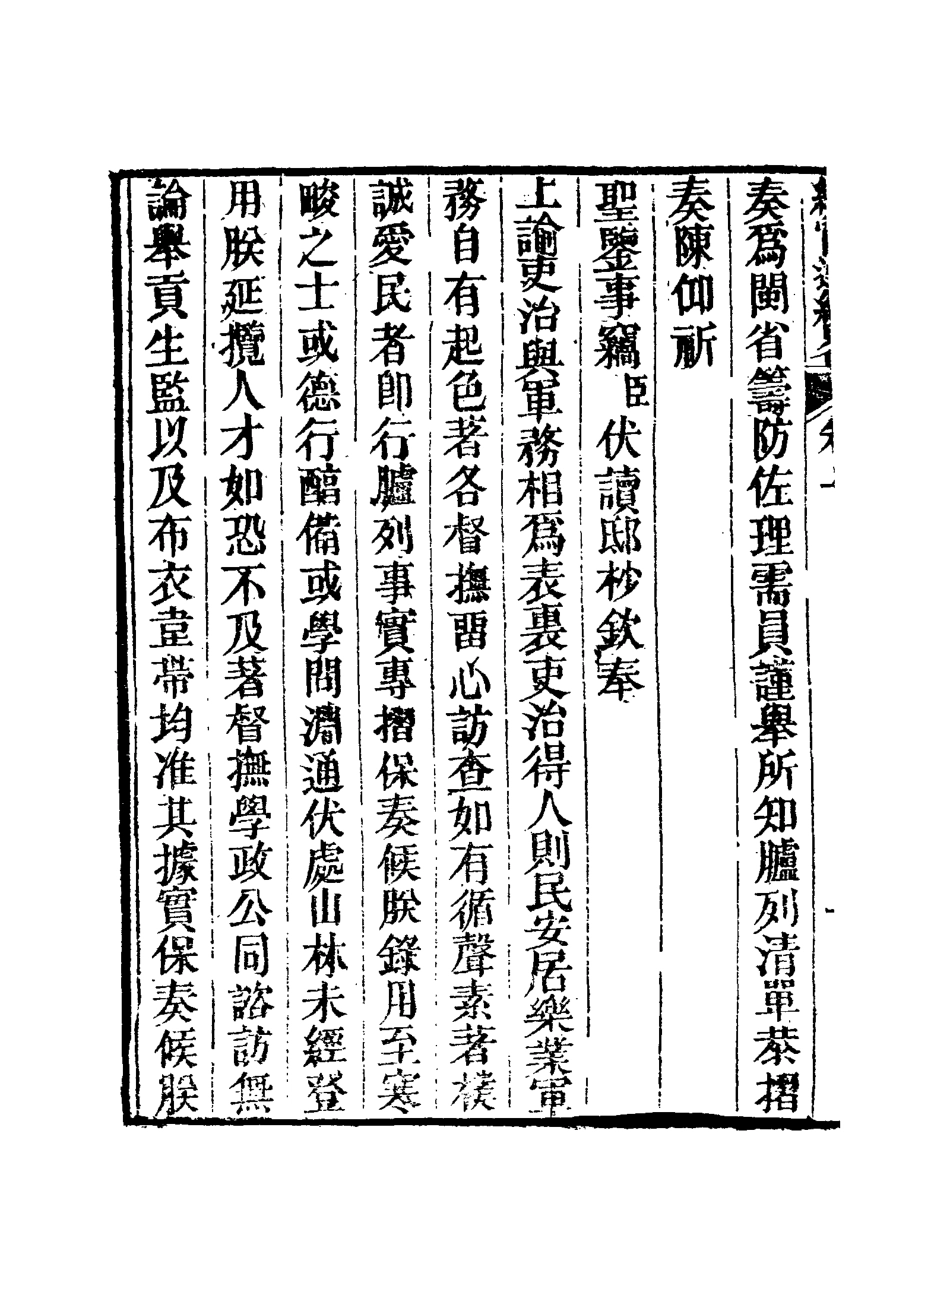 奏爲閩省籌防佐理需員謹舉所知臚列清單恭摺
奏陳仰祈
聖鑒事竊臣伏讀邸杪欽奉
上諭吏治與軍務相爲表裏吏治得人則民安居樂業軍
務自有起色著各督撫畱心訪查如有循聲素著樸
誠愛民者卽行臚列事實專摺保奏候朕錄用至寒
畯之士或德行醕備或學問淵通伏處山林未經登
用朕延攬人才如恐不及著督撫學政公同諮訪無
論舉貢生監以及布衣韋帶均准其據實保奏候朕